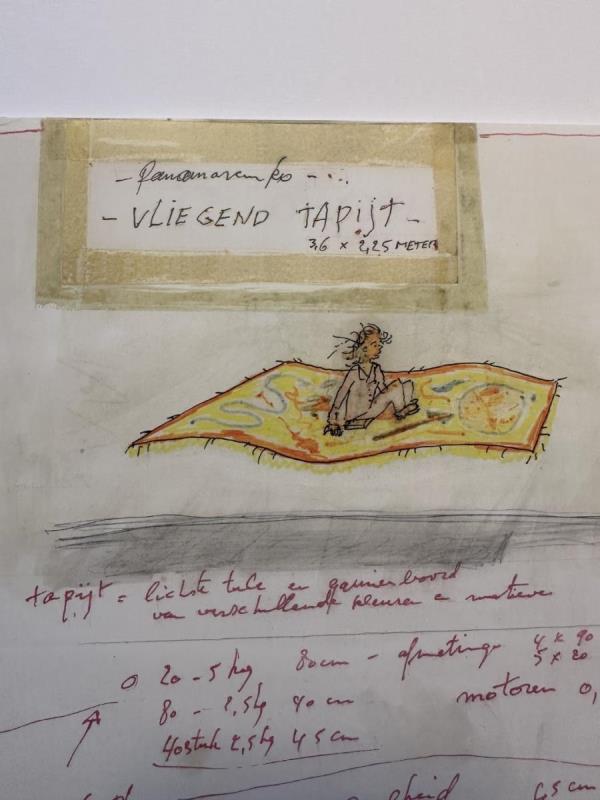 - Panamarenko - ...
- VLIEGEND TAPIJT -
3,6 x 2,25 METER
tapijt = lichste tule en
van verschillende kleuren en motieve
0 20 - 5 kg 80 cm - afmetinge 4 x 90
5 x 20
80 - 2,5 kg 40 cm motoren 0,
40 stuk 2,5 kg 45 cm